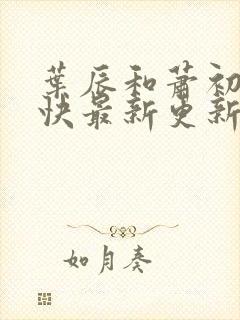 葉辰和蕭初
快最新更新
如月奏